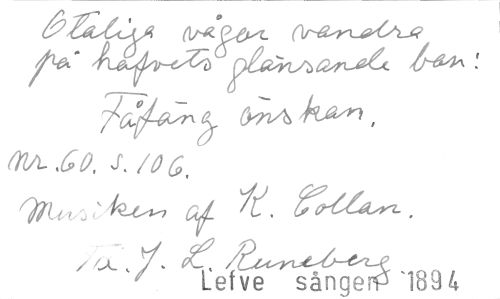 Otaliga vågor vandra
på hafvets glänsande ban:
Fåfäng önskan.
Nr. 60. s. 106.
Musiken af K. Collan.
Tx. J. L. Runeberg
Lefve sången 1894